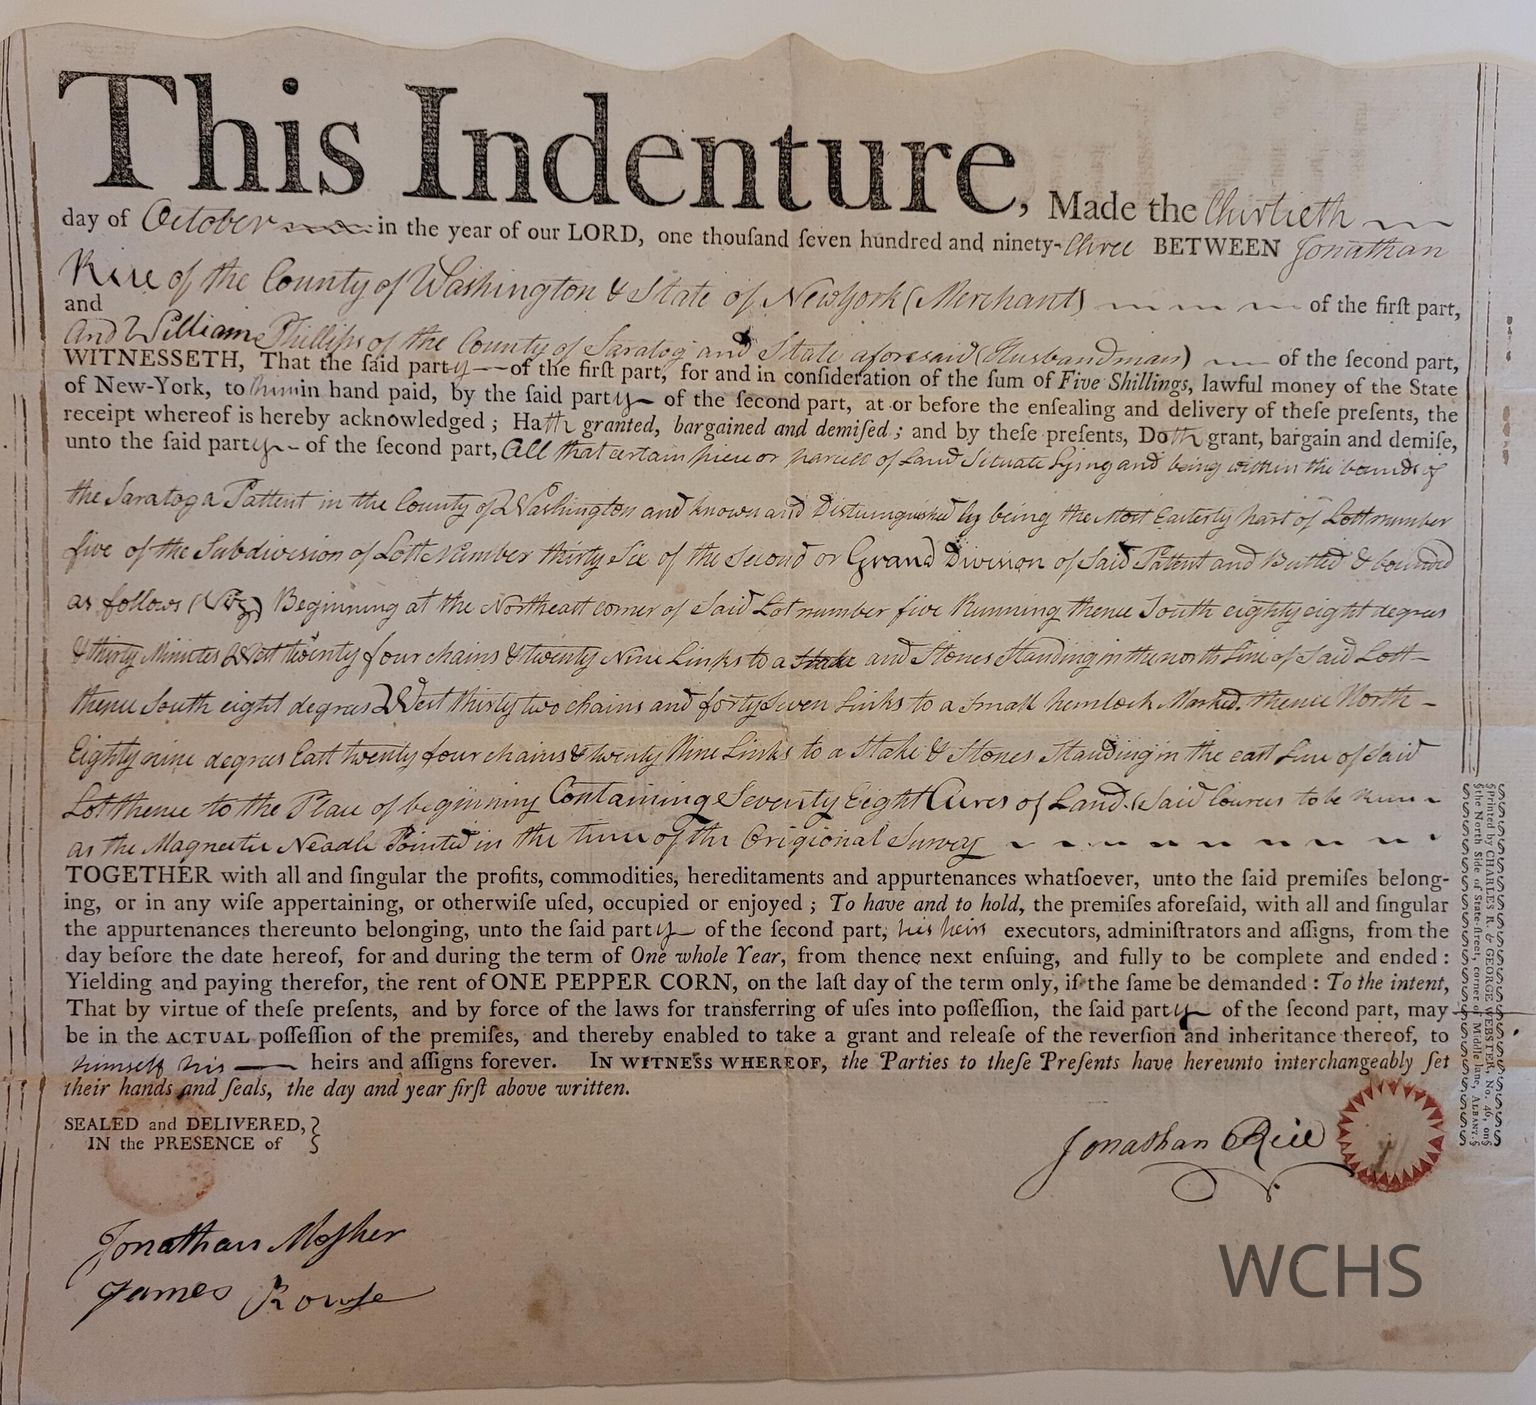 This Indenture, Made the Thirtieth
day of October in the year of our LORD, one thouſand ſeven hundred and ninety-three BETWEEN Jonathan
Rice of the County of Washington & State of NewYork (Merchant) of the firſt part,
and
And William Phillips of the County of Saratog and State aforesaid (Husbandman) of the ſecond part,
WITNESSETH, That the ſaid party of the firſt part, for and in conſideration of the ſum of Five Shillings, lawful money of the State
of New-York, to him in hand paid, by the ſaid party of the ſecond part, at or before the enſealing and delivery of theſe preſents, the
receipt whereof is hereby acknowledged; Hath granted, bargained and demiſed; and by theſe preſents, Doth grant, bargain and demiſe,
unto the ſaid party of the ſecond part, All that certain piece or parcell of Land Situate Lying and being within the bounds of
the Saratoga Pattent in the County of Washington and known and Distinguished by being the Most Easterly part of Lott number
five of the Subdivision of Lott Number thirty Six of the Second or Grand Division of Said Pattent and Butted & bounded
as follows (Viz) Beginning at the Northeast corner of Said Lot number five Running thence South eighty eight degrees
& thirty Minutes West twenty four chains & twenty Nine Links to a Stake and Stones Standing in the north Line of Said Lott
thence South eight degrees West thirty two chains and forty Seven Links to a Small hemlock Marked. thence North
Eighty nine degrees East twenty four chains & twenty Nine Links to a Stake & Stones Standing in the east Line of Said
Lot thence to the Place of beginning Containing Seventy Eight Acres of Land. Said Cources to be Run
as the Magnetic Neadle Pointed in the time of the Origional Survey
TOGETHER with all and ſingular the profits, commodities, hereditaments and appurtenances whatſoever, unto the ſaid premiſes belong-
ing, or in any wiſe appertaining, or otherwiſe uſed, occupied or enjoyed; To have and to hold, the premiſes aforeſaid, with all and ſingular
the appurtenances thereunto belonging, unto the ſaid party of the ſecond part, his heirs executors, adminiſtrators and aſſigns, from the
day before the date hereof, for and during the term of One whole Year, from thence next enſuing, and fully to be complete and ended:
Yielding and paying therefor, the rent of ONE PEPPER CORN, on the laſt day of the term only, if the ſame be demanded: To the intent,
That by virtue of theſe preſents, and by force of the laws for transferring of uſes into poſſeſſion, the ſaid party of the ſecond part, may
be in the ACTUAL poſſeſſion of the premiſes, and thereby enabled to take a grant and releaſe of the reverſion and inheritance thereof, to
himself his heirs and aſſigns forever. IN WITNESS WHEREOF, the Parties to theſe Preſents have hereunto interchangeably ſet
their hands and ſeals, the day and year firſt above written.
SEALED and DELIVERED,
IN the PRESENCE of
Jonathan Rice
Jonathan Mosher
James Rouse
§Printed by CHARLES R. & GEORGE WEBSTER, No. 46, on§
§the North Side of State-ſtreet, corner of Middle-lane, ALBANY.§
WCHS